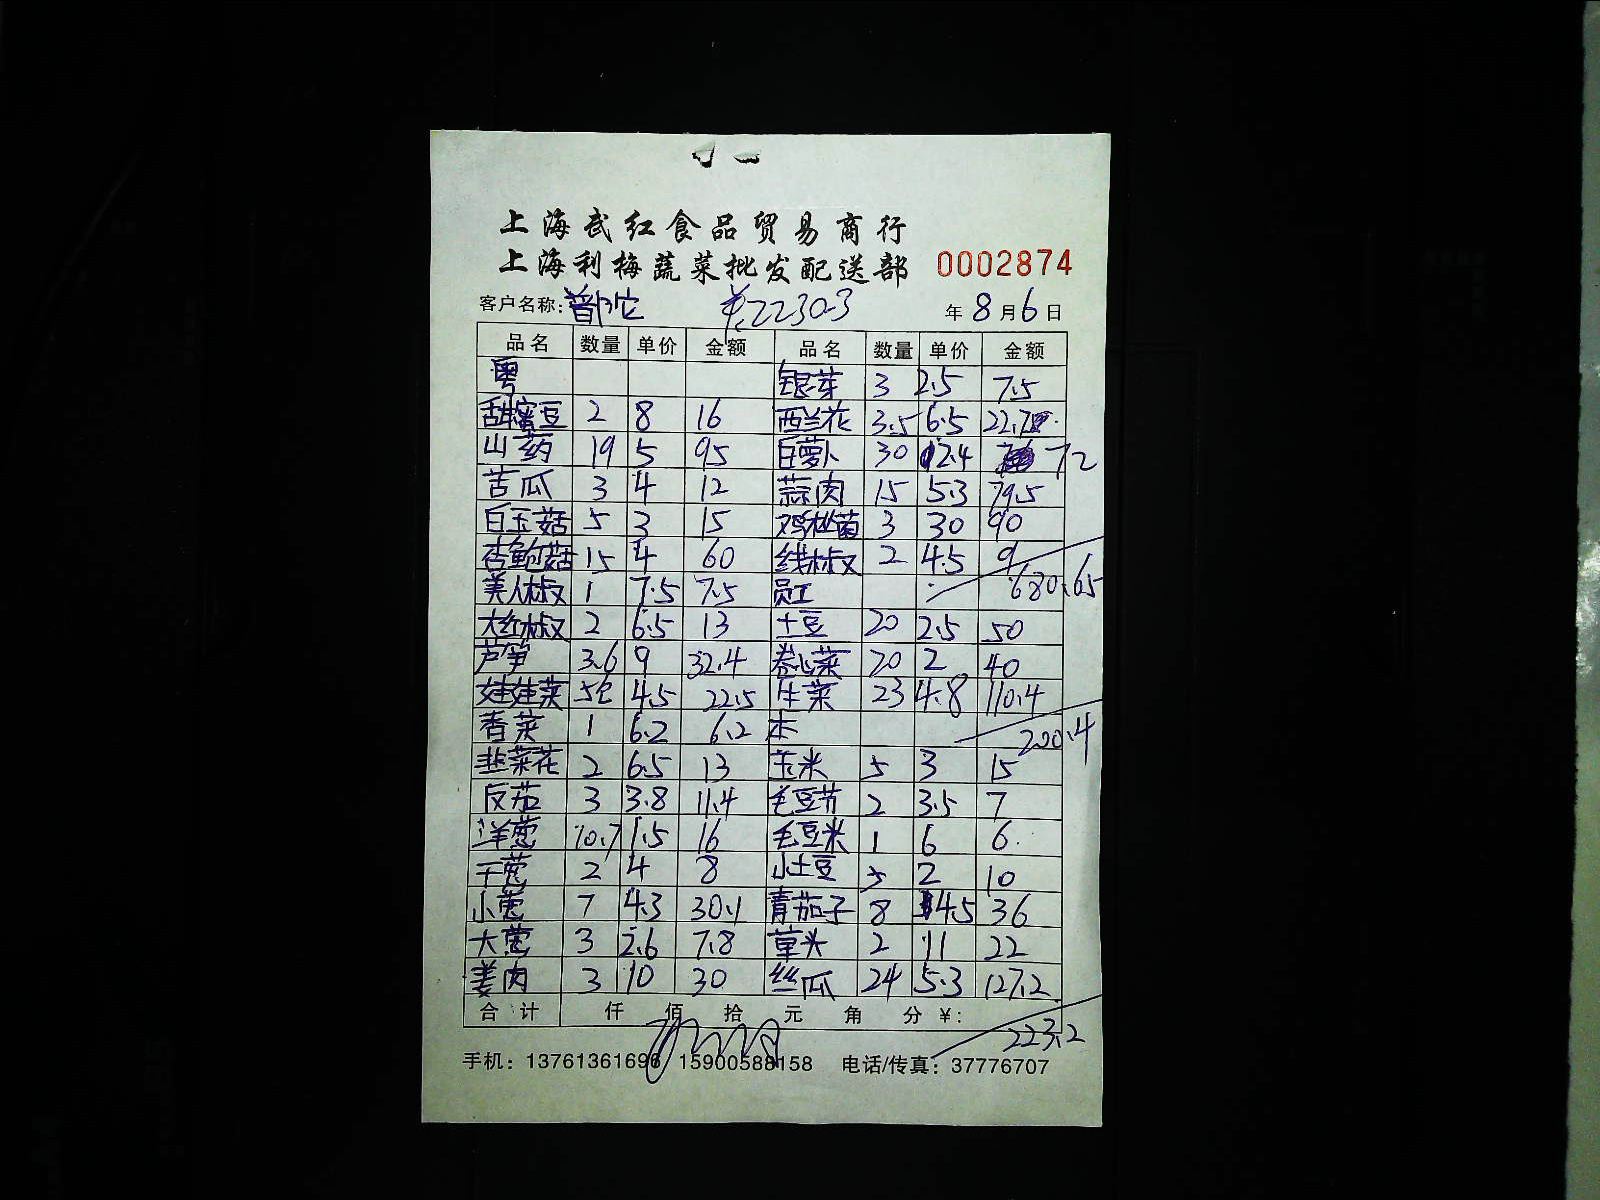 上海武红食品贸易商行
上海利梅蔬菜批发配送部 0002874
客户名称:普陀 ¥2230.3 年8月6日
品名 数量 单价 金额 品名 数量 单价 金额
粤 银芽 3 2.5 7.5
甜蜜豆 2 8 16 西兰花 3.5 6.5 22.7
山药 19 5 95 白萝卜 30 2.4 72
苦瓜 3 4 12 蒜肉 15 5.3 79.5
白玉菇 5 3 15 鸡枞菌 3 30 90
杏鲍菇 15 4 60 线椒 2 4.5 9
美人椒 1 7.5 7.5 员工 680.65
大红椒 2 6.5 13 土豆 20 2.5 50
芦笋 3.6 9 32.4 卷心菜 20 2 40
娃娃菜 5包 4.5 22.5 生菜 23 4.8 110.4
香菜 1 6.2 6.2 本 200.4
韭菜花 2 6.5 13 玉米 5 3 15
反茄 3 3.8 11.4 毛豆节 2 3.5 7
洋葱 10.7 1.5 16 毛豆米 1 6 6
干葱 2 4 8 小土豆 5 2 10
小葱 7 4.3 30.1 青茄子 8 4.5 36
大葱 3 2.6 7.8 草头 2 11 22
姜肉 3 10 30 丝瓜 24 5.3 127.2
合计 仟 佰 拾 元 角 分 ¥: 223.2
手机：13761361696 15900588158 电话/传真：37776707